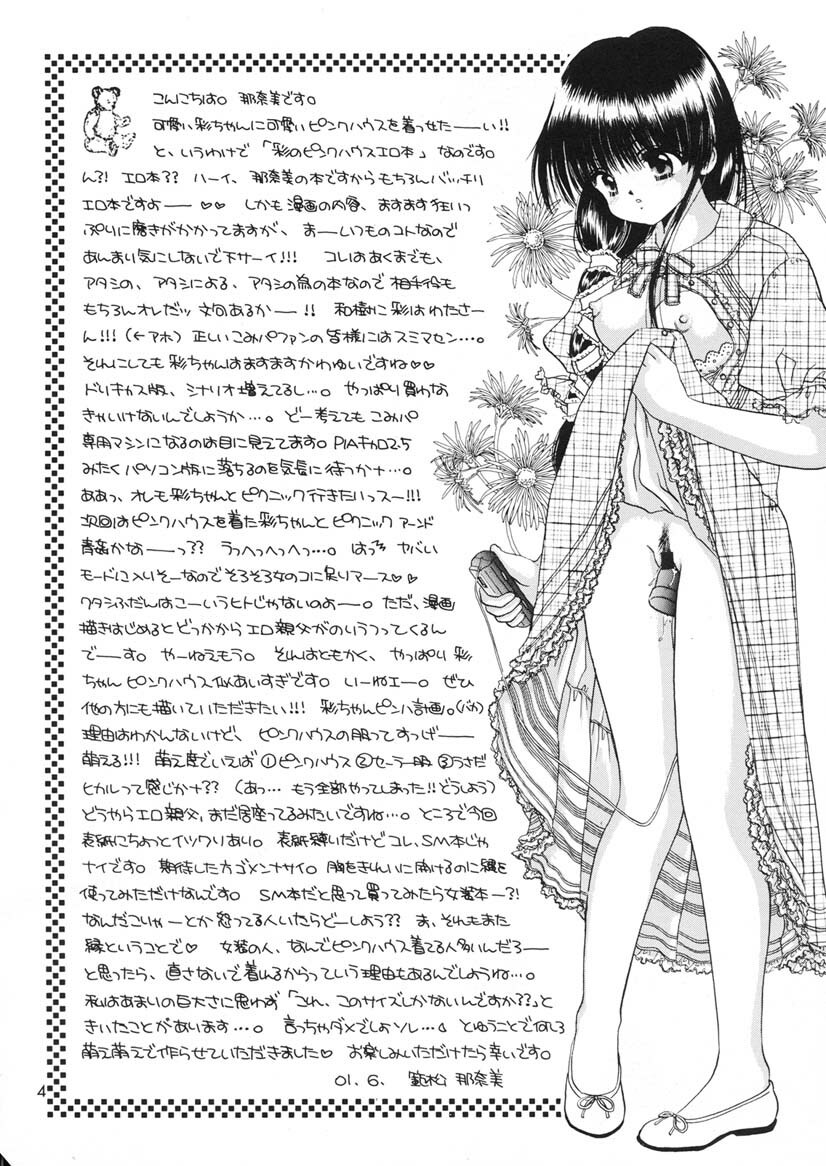 こんにちは。那奈美です。
可愛い彩ちゃんに可愛いピンクハウスを着っせたーーい!!
と、いうわけで「彩のピンクハウスエロ本」なのです。
ん?! エロ本?? ハーイ、那奈美の本ですからもちろんバッチリ
エロ本ですよー♡♡ しかも漫画の内容、ますます狂いっ
ぷりに磨きがかかってますが、まーいつものコトなので
あんまい気にしないで下サーイ!!! コレはあくまでも、
アタシの、アタシによる、アタシの為の本なので相手役も
もちろんオレだッ 文句あるかー!! 和樹に彩はわたさー
ん!!!(←アホ) 正しいこみパファンの皆様にはスミマセン…。
そんにしても彩ちゃんはますますかわゆいですね♡♡
ドリキャス版、シナリオ増えてるし…。 やっぱり買わな
きゃいけないんでしょうか…。どー考えてもこみパ
専用マシンになるのは目に見えてます。PIAキャロ2.5
みたくパソコン版に落ちるのを気長に待つかナ…。
ああっ、オレも彩ちゃんとピクニック行きたいっスー!!!
次回はピンクハウスを着た彩ちゃんとピクニック アーンド
青姦かなーーっ?? うっへっへっへっ…。 はっ ヤバい
モードに入りそーなのでそろそろ女のコに戻りマース♡♡
ワタシふだんはこーいうヒトじゃないのよー。ただ、漫画
描きはじめるとどっかからエロ親父がのいうつってくるん
でーーす。やーねえもう。そんはともかく、やっぱり彩
ちゃんピンクハウス似あいすぎです。いーねエー。ぜひ
他の方にも描いていただきたい!!! 彩ちゃんピンハ計画。(バカ)
理由はわかんないけど、ピンクハウスの服ってすっげー
萌える!!! 萌え度でいえば①ピンクハウス②セーラー服③うさだ
ヒカルって感じかナ?? (あっ…もう全部やってしまった!!どうしよう)
どうやらエロ親父、まだ居座ってるみたいですね…。ところで今回
表紙にちょっとイツワリあり。表紙縛いだけどコレ、SM本じゃ
ナイです。期待した方ゴメンナサイ。胸をきれいに開けるのに縄を
使ってみただけなんです。SM本だと思って買ってみたら女装本ー?!
なんだこりゃーとか怒ってる人いたらどーしよう?? ま、それもまた
縁ということで♡ 女装の人、なんでピンクハウス着てる人多いんだろー
と思ったら、直さないで着れるからっていう理由もあるんでしょうね…。
私はあまりの巨大さに思わず「これ、このサイズしかないんですか??」と
きいたことがあります…。言っちゃダメでしょソレ… とゆうことで何しろ
萌え萌えで作らせていただきました♡ お楽しみいただけたら幸いです。
01.6. 那奈美
4